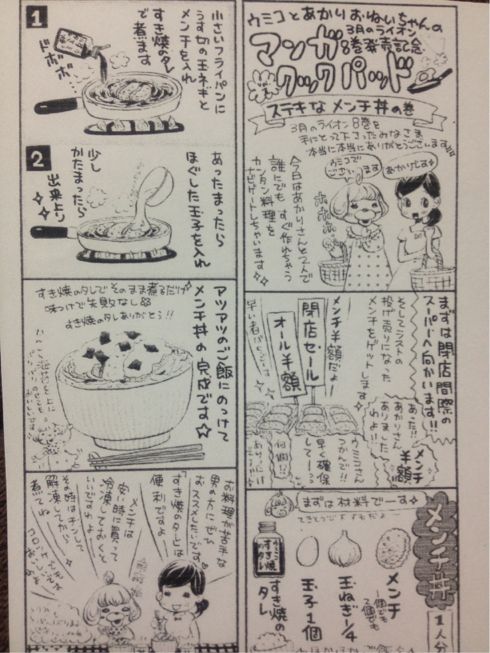 ウミコとあかりおねいちゃんの
3月のライオン
8巻発売記念
マンガ
クックパッド
ステキなメンチ丼の巻
3月のライオン8巻を
手にとって下さったみなさま
本当に本当にありがとうございます!!
ウミコで
ございます
あかりです
今日はあかりさんと2人で
誰にでもすぐ作れちゃう
カンタン料理を
ナビゲートしちゃいます
まずは閉店間際の
スーパーへ向かいます!!
そしてラストの
投げ売りになった
メンチをゲットします
メンチ半額だよ
閉店セール
オール半額
あった!!
あかりさん
ありました
わよ!!
メンチ
半額
ウミコさん
つかんで!!
早く確保
してーっ
メンチ丼
1人分
まずは材料でーす
メンチ
玉ねぎ1/4
玉子1個
すき焼の
タレ
すき焼
のタレ
1
小さいフライパンに
うす切の玉ネギと
メンチを入れ
すき焼のタレ
で煮ます
ドボボボ
2
あったまったら
ほぐした玉子を入れ
少し
かたまったら
出来上り
アツアツのご飯にのっけて
メンチ丼の完成です☆
すき焼のタレでそのまま煮るだけ
味つけで失敗なし
すき焼のタレありがとう!!
お料理が苦手な
男の人にも
おススメだいえます
「すき焼のタレ」は
便利ですよ
メンチは
安い時に買って
冷凍しておくと
いいですわよ
その時はチンして
解凍してから
煮てね